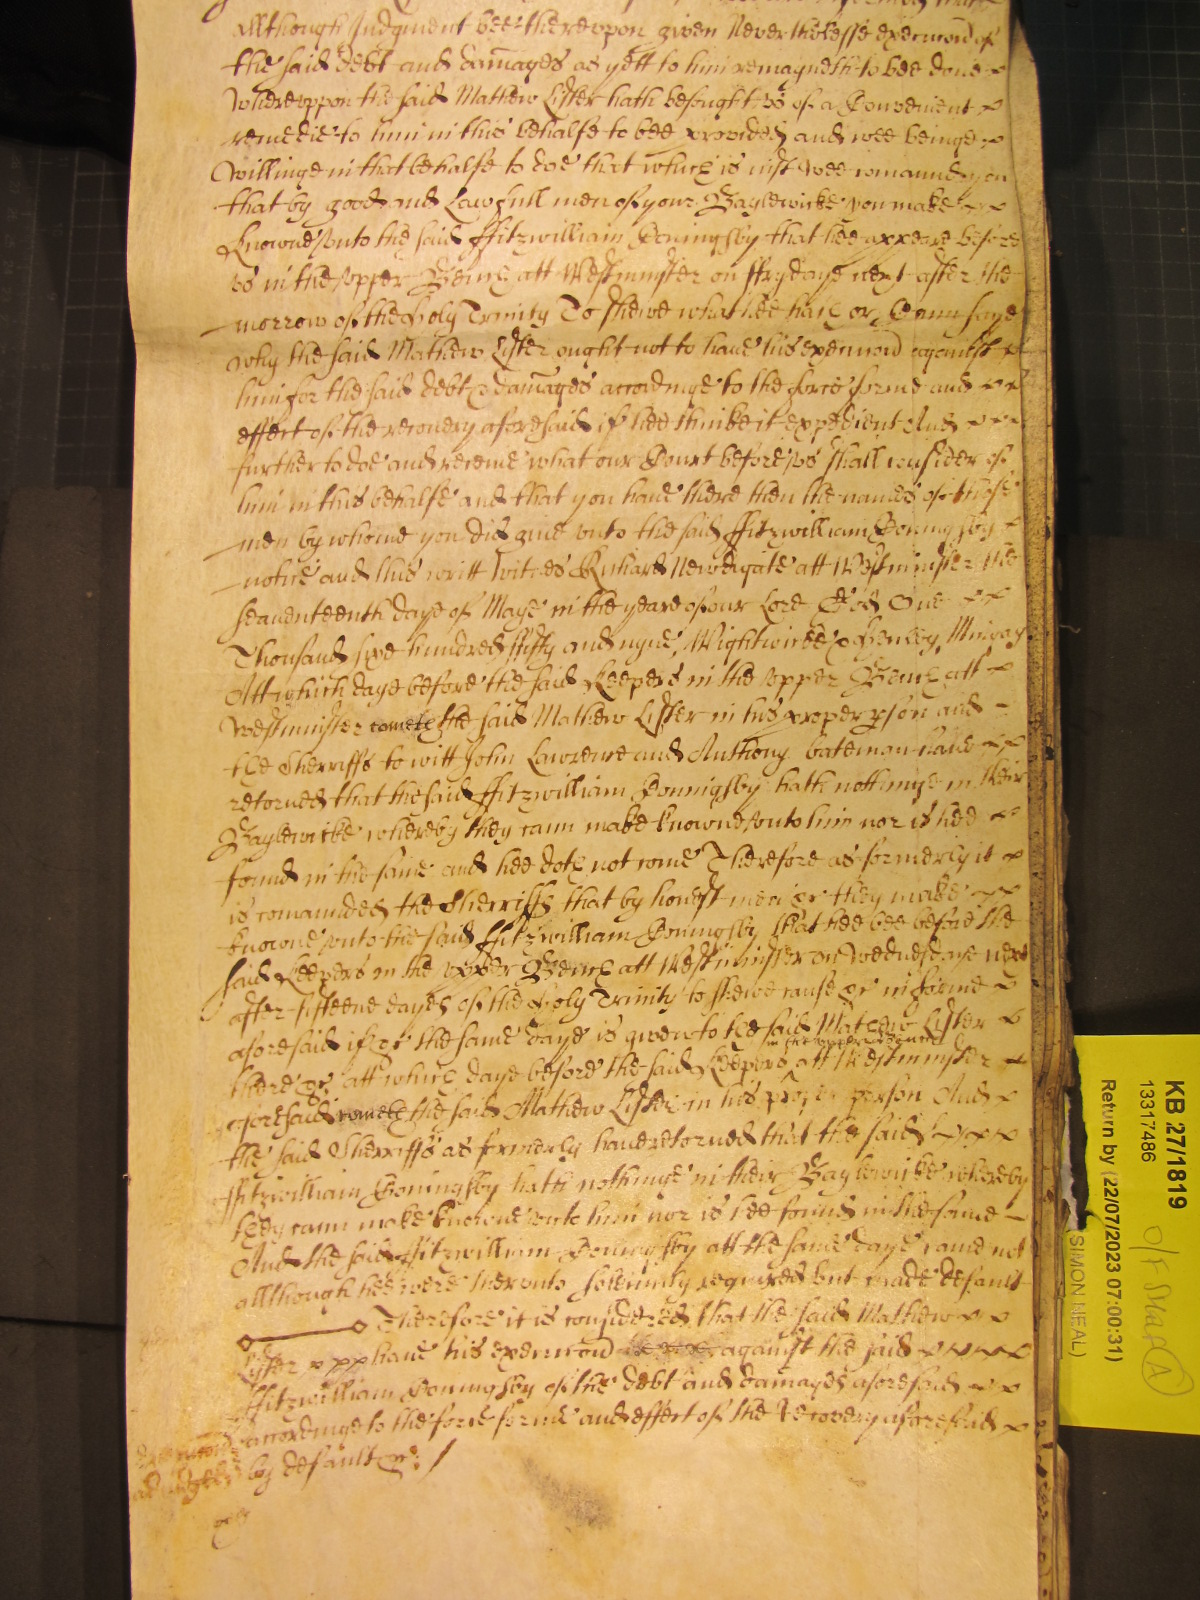 allthough Judgment bee thereupon given Neverthelesse execucion of
the said debt and damages as yett to him remayneth to bee done
Whereuppon the said Mathew Lister hath besought us of a Convenient
remedie to him in this behalfe to bee provided and wee beinge
Willinge in that behalfe to doe that which is iust Wee comaund you
that by good and Lawfull men of your Baylewicke you make
knowne unto the said ffitzwilliam Coningsby that hee appeare before
us in the upper Bench att Westminster on ffryday next after the
morrow of the Holy Trinity To shewe what hee hath or Cann saye
why the said Mathew Lister ought not to have his execucion against
him for the said debt & damages accordinge to the force forme and
effect of the recovery aforesaid if hee thinke it expedient And
further to doe and receive what our Court before us shall consider of
him in this behalfe and that you have there then the names of those
men by whome you did give unto the said ffitzwilliam Coningsby
notice and this writt Witnes Richard Newdigate att Westminster the
seaventeenth daye of Maye in the yeare of our Lord God One
Thousand sixe hundred ffifty and nyne, Wightwicke & Henley,
Att which daye before the said Keepers in the upper Bench att
Westminster cometh the said Mathew Lister in his proper person and
the Sherriffs to witt John Lawrence and Anthony bateman have
retorned that the said ffitzwilliam Coningsby hath nothinge in their
Baylewicke whereby they cann make knowne unto him nor is hee
found in the same and hee doth not come Therefore as formerly it
is comaunded the Sherriffs that by honest men &c they make
knowne unto the said ffitzwilliam Coningsby that hee bee before the
said Keepers in the upper Bench att Westminster on Wednesdaye next
after fifteene dayes of the Holy Trinity to shewe cause &c in forme
aforesaid if &c the same daye is given to the said Mathew Lister
in the upper Bench
there &c att which daye before the said Keepers att Westminster
aforesaid cometh the said Mathew Lister in his proper person And
the said Sherriffs as formerly have retorned that the said
ffitzwilliam Coningsby hath nothinge in their Baylewicke whereby
they cann make knowne unto him nor is hee found in the same
And the said ffitzwilliam Coningsby att the same daye came not
allthough hee were therunto solemnly required but made default
Therefore it is considered that the said Mathew
Lister have his execucion against the said
ffitzwilliam Coningsby of the debt and damages aforesaid
accordinge to the force forme and effect of the Recovery aforesaid
by default &c
KB 27/1819
13317486
Return by (22/07/2023 07:00:31)
SIMON NEAL)
A